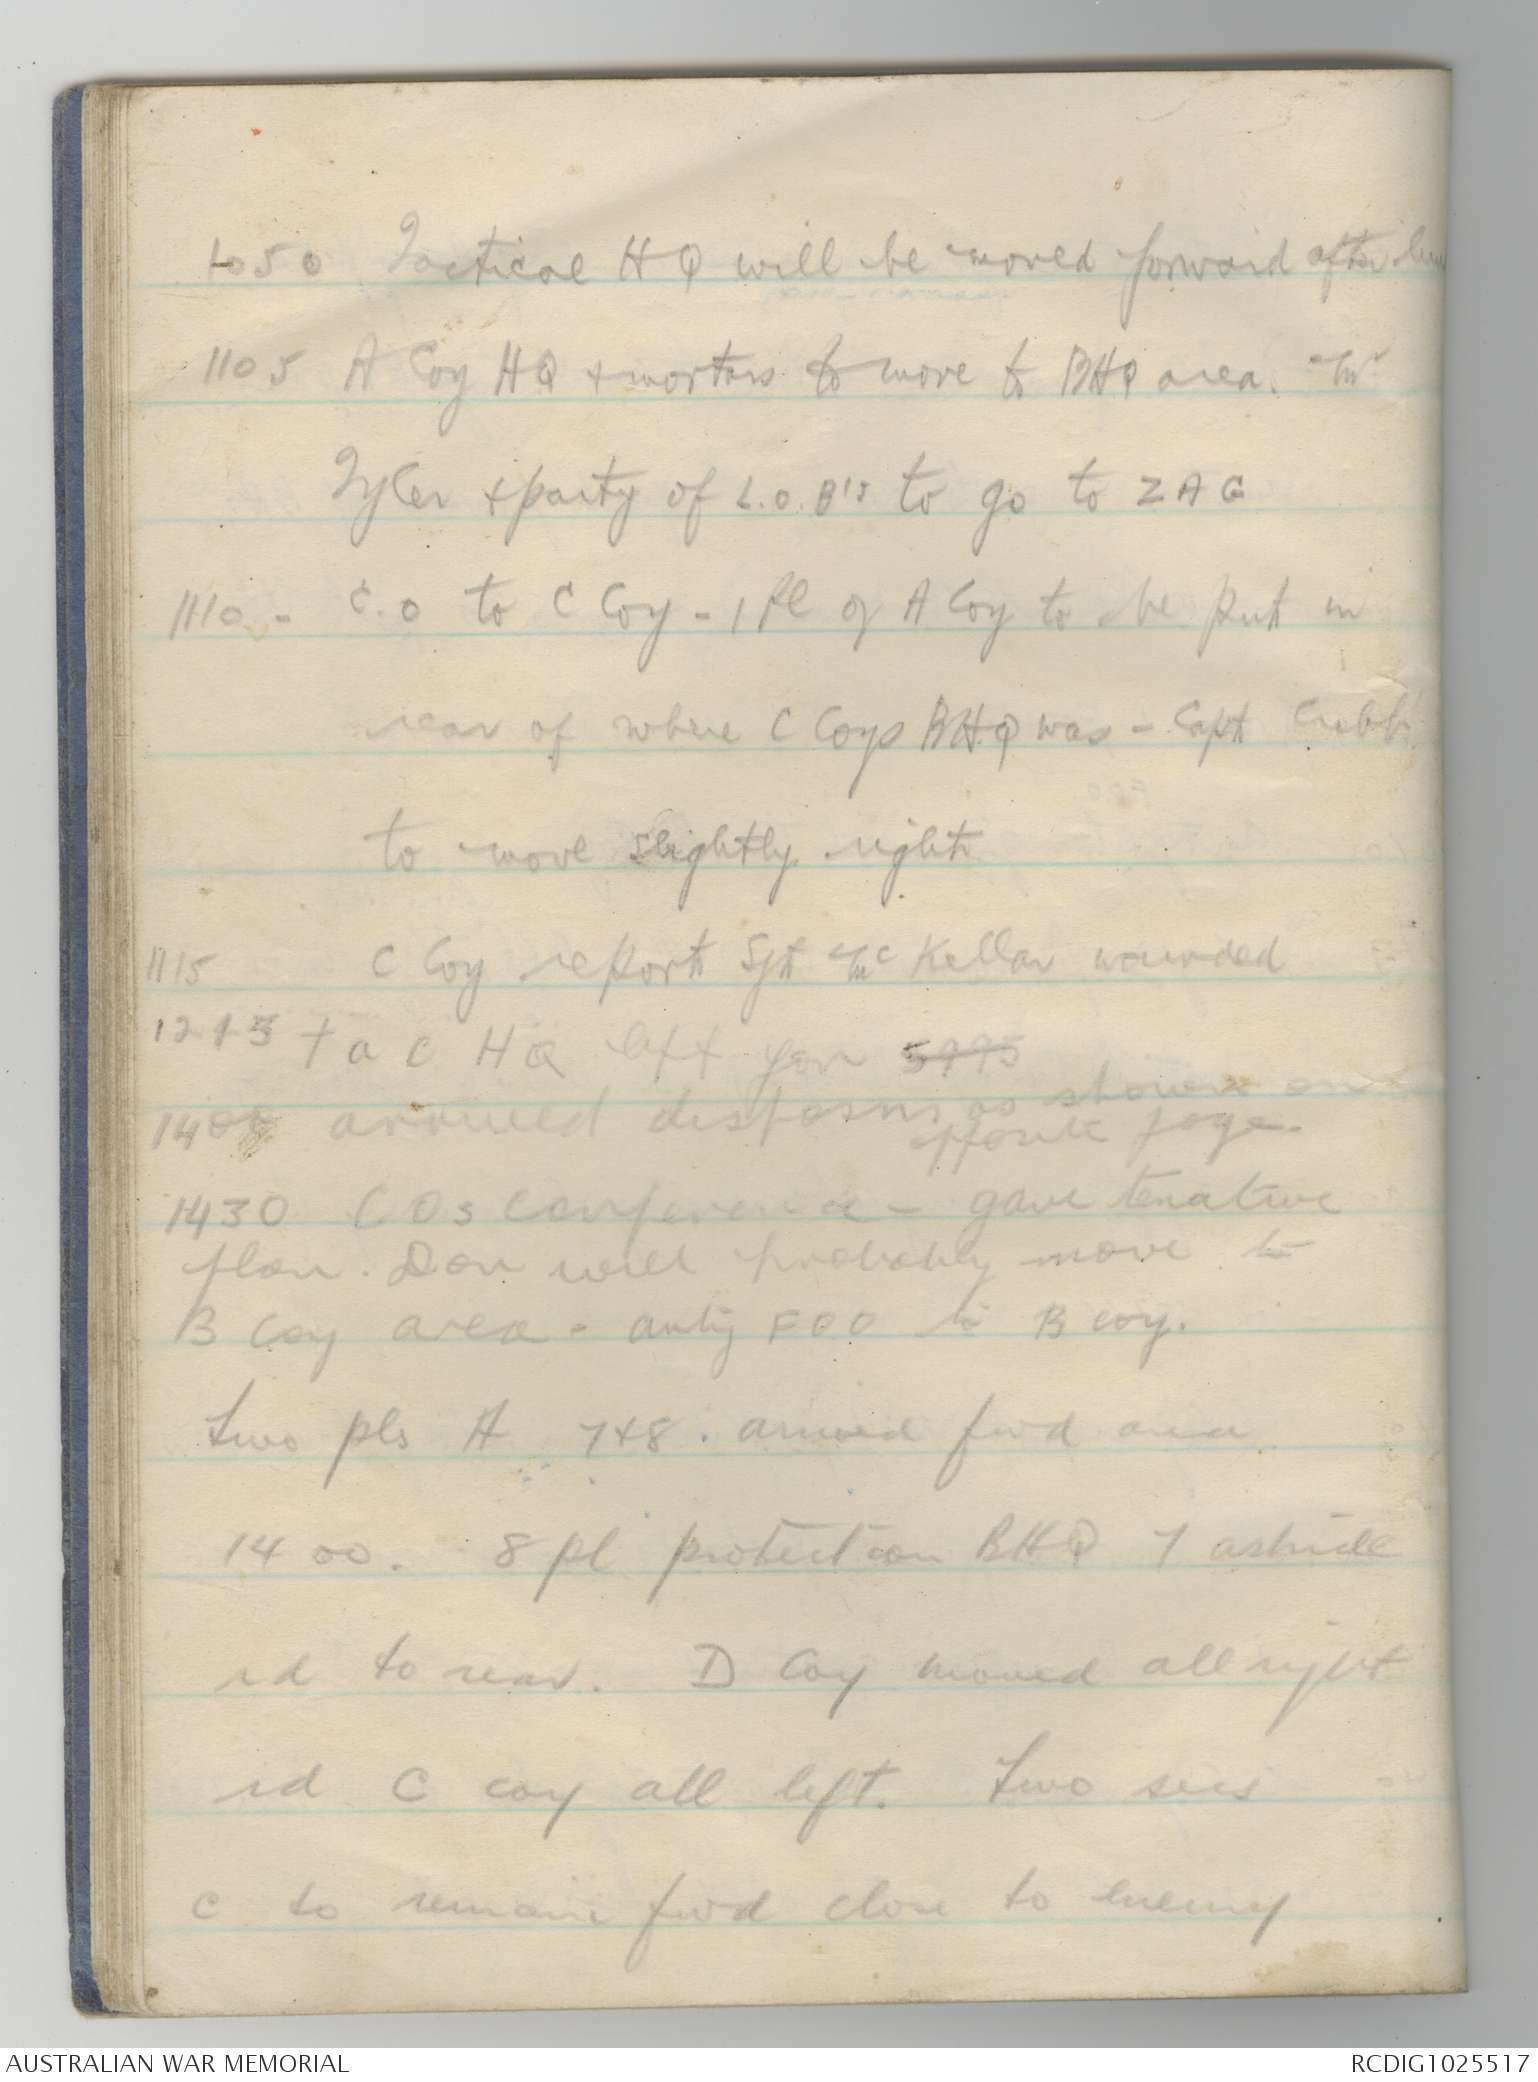 1050 Tactical HQ will be moved forward after
1105 A Coy HQ + mortars to move to BHQ area. Mr
Tyler + party of L.O.B's to go to ZAG
1110 - C.O to C Coy - 1 Pl of A Coy to be put in
rear of where C Coys BHQ was - Capt
to move slightly right
1115 C Coy report Sgt McKellar wounded
Tac HQ left for
1400 arrived disposns as shown on
opposite page.
1430 COs conference - gave tenative
plan. Don will probably move to
B Coy area - arty FOO to B coy.
Two pls A 7+8. arrived fwd area
1400. 8 pl protection BHQ 7 astride
rd to rear. D Coy moved all right
rd C coy all left. Two secs
C to remain fwd close to enemy
AUSTRALIAN WAR MEMORIAL
RCDIG1025517